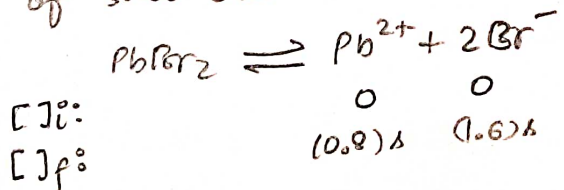 of
PbBr₂ ⇌ Pb²⁺ + 2Br⁻
[ ]i: 0 0
[ ]f: (0.8)s (1.6)s